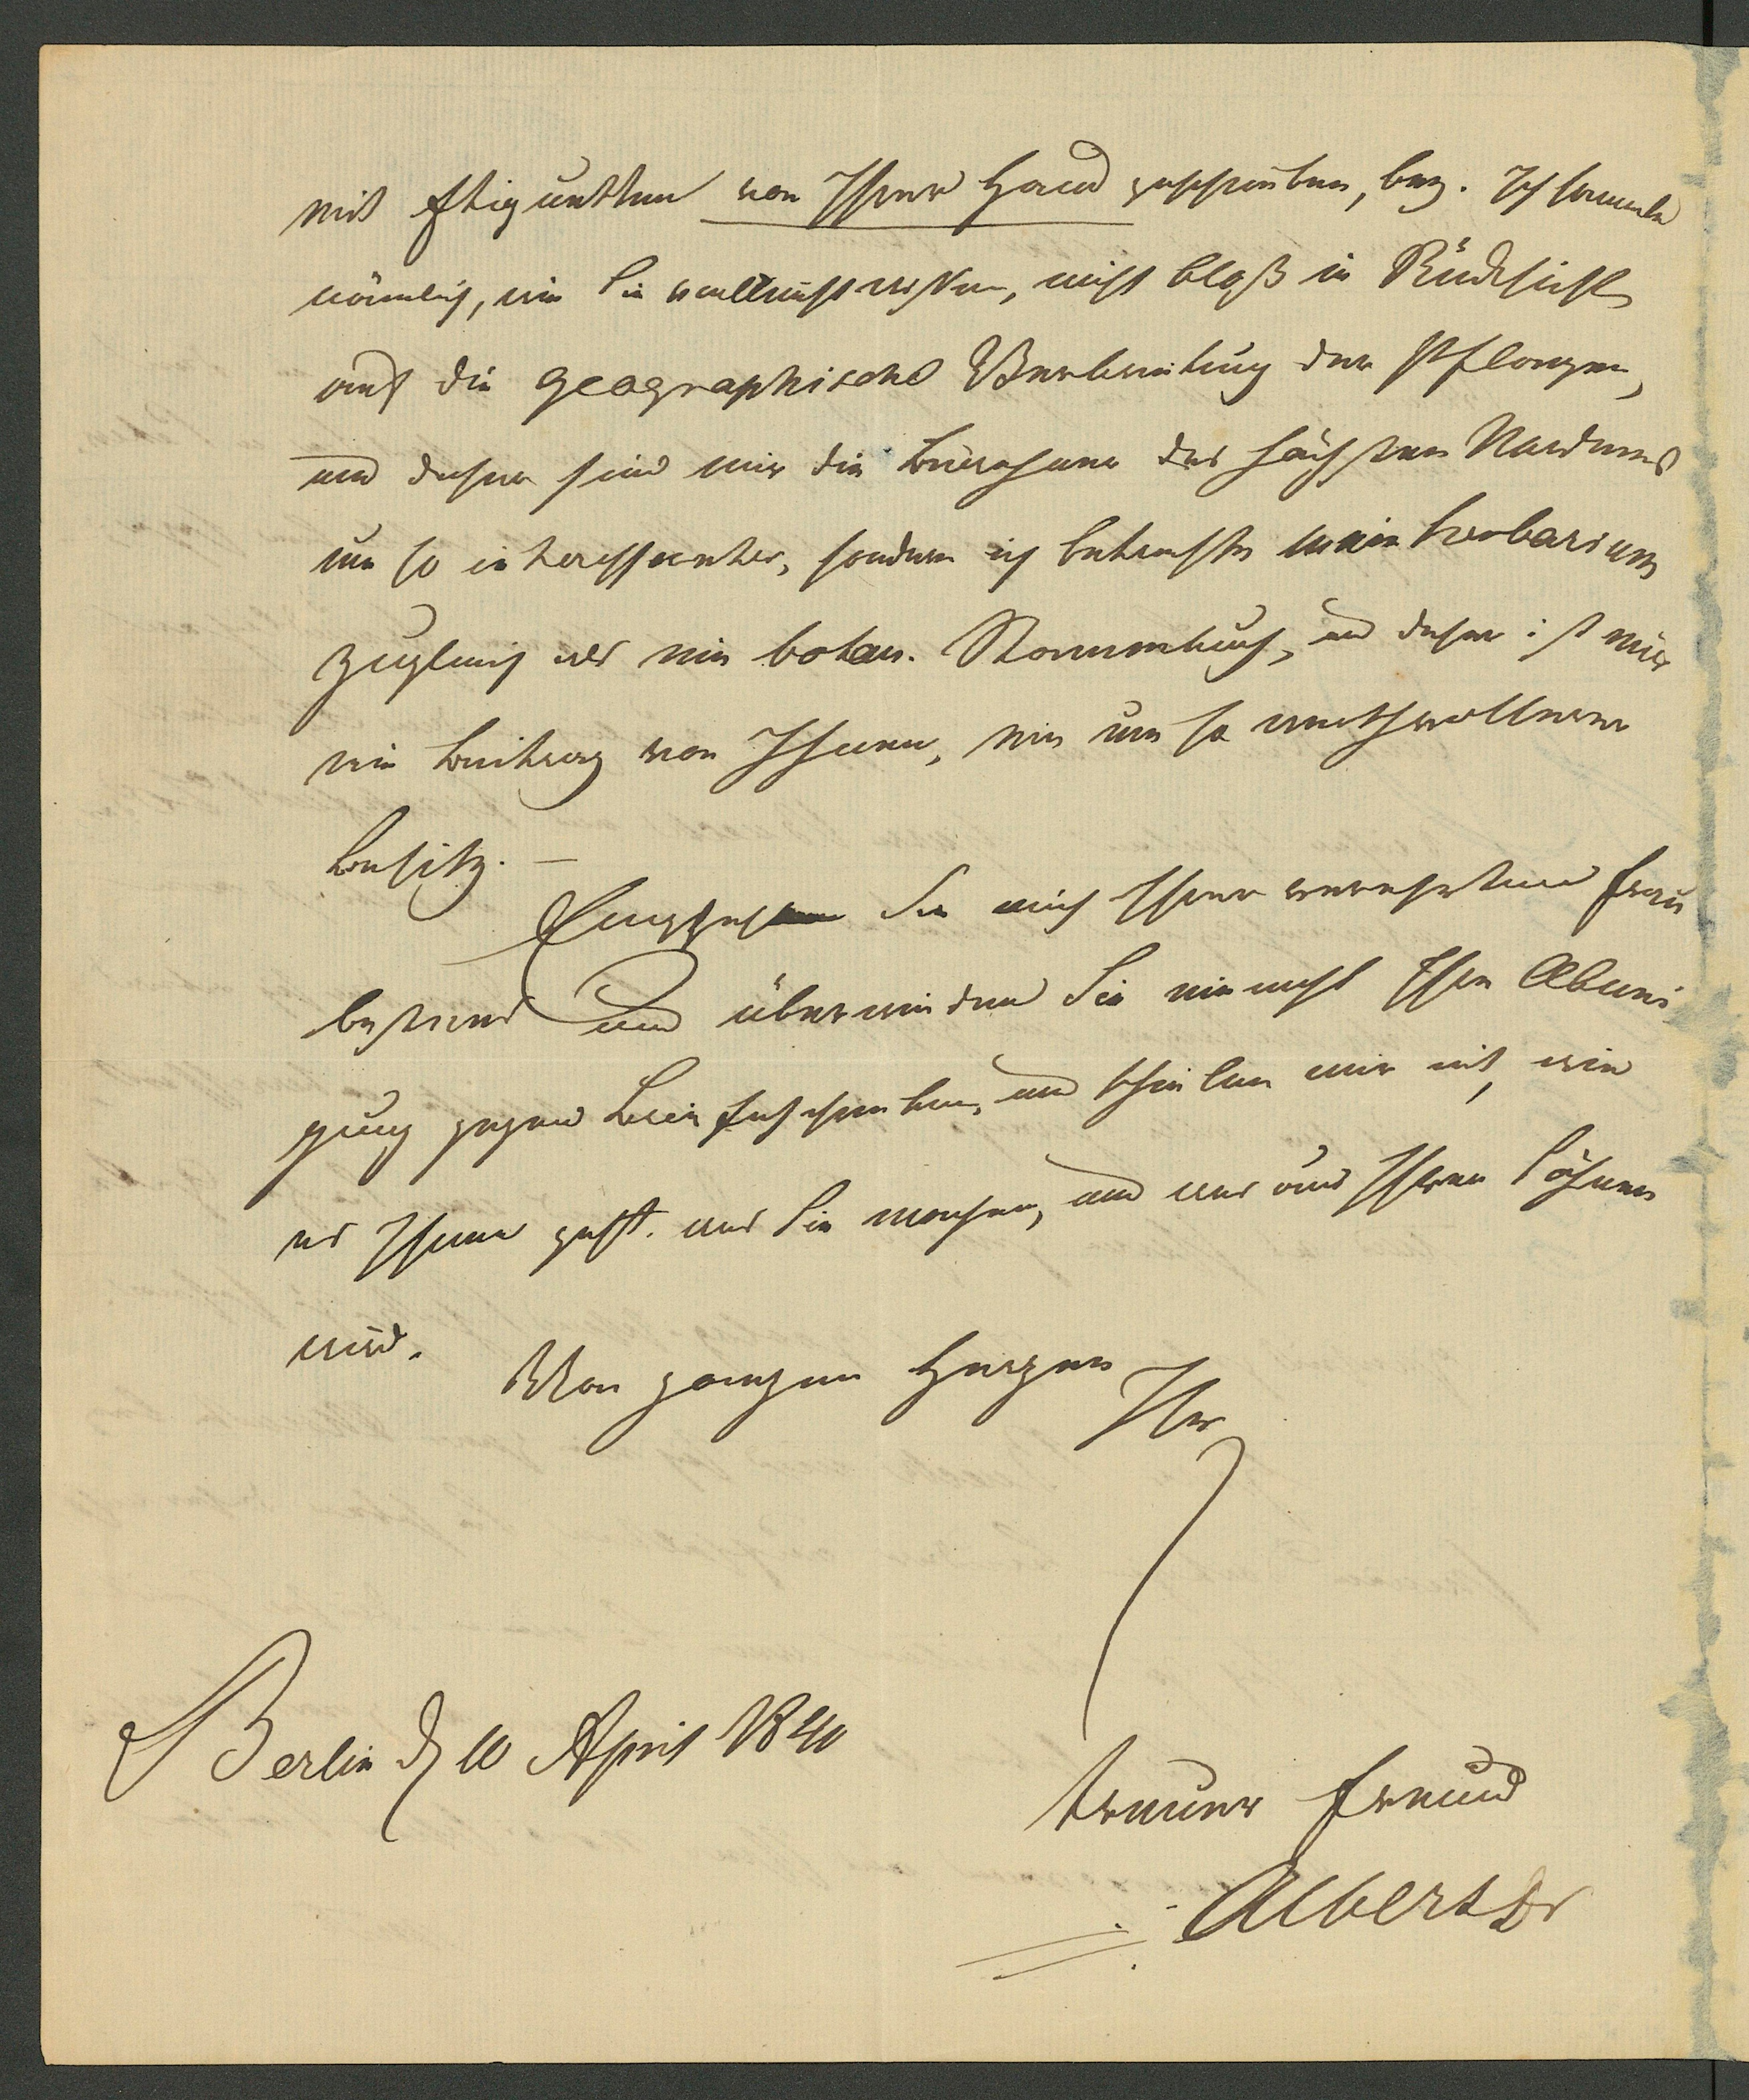 mit Etiquetten von Ihrer Hand geschrieben, bey. Ich sammle
nämlich, wie Sie vielleicht wissen, nicht bloß in Rücksicht
auf die geographische Verbreitung der Pflanzen,
und daher sind mir die Bürger des höchsten Nordens
um so interessanter, sondern ich betrachte mein herbarium
zugleich als ein botan. Stammbuch, und daher ist mir
ein Beitrag von Ihnen, ein um so werthvollerer
Besitz. —
Empfehlen Sie mich Ihrer verehrten Frau
bestens und überwinden Sie einmal Ihre Abnei-
gung gegen Briefschreiben, und theilen mir mit, wie
es Ihnen geht. was Sie machen, und was aus Ihren Söhnen
wird.
Von ganzem Herzen
Ihr
Berlin d 10 April 1840
treuer Freund
Albers Dr